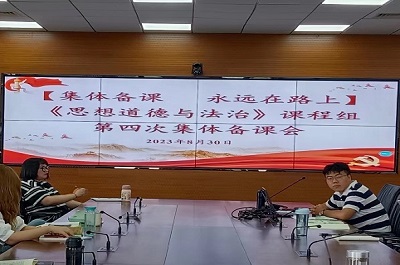 【集体备课 永远在路上】
《思想道德与法治》课程组
第四次集体备课会
2023年8月30日